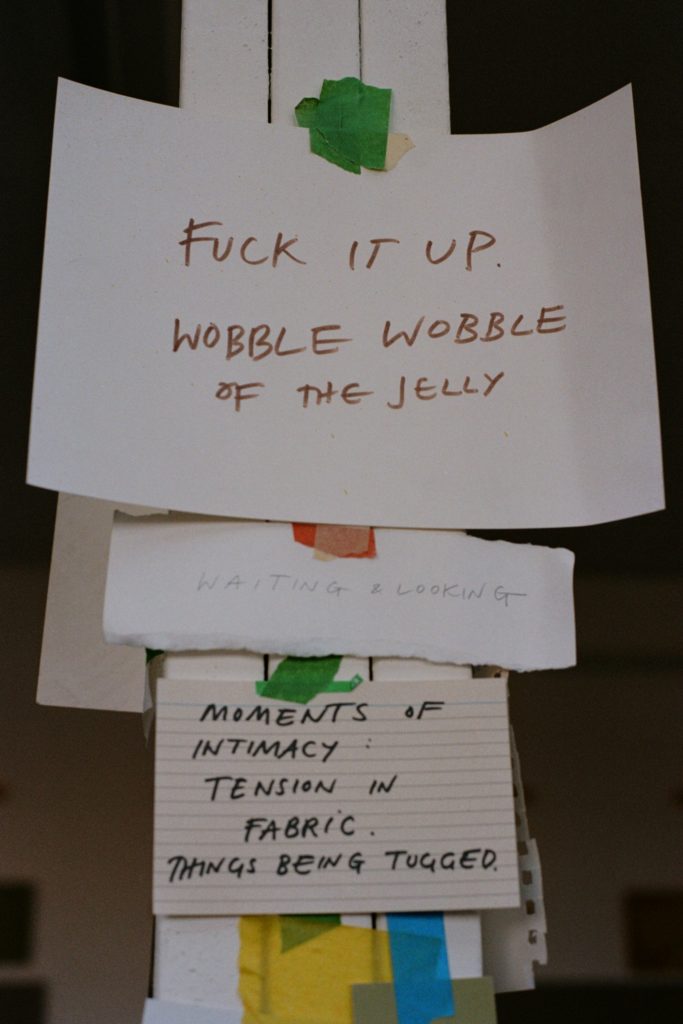 FUCK IT UP.
WOBBLE WOBBLE
OF THE JELLY
WAITING & LOOKING
MOMENTS OF
INTIMACY :
TENSION IN
FABRIC.
THINGS BEING TUGGED.